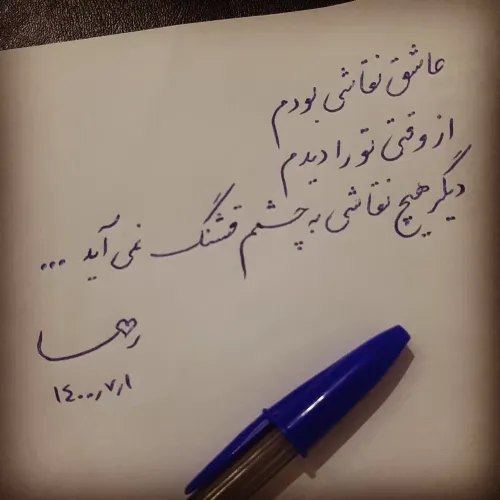 عاشق نقاشی بودم
از وقتی تو را دیدم
دیگر هیچ نقاشی به چشمم قشنگ نمی آید ...
۱۴۰۰٫۷٫۱